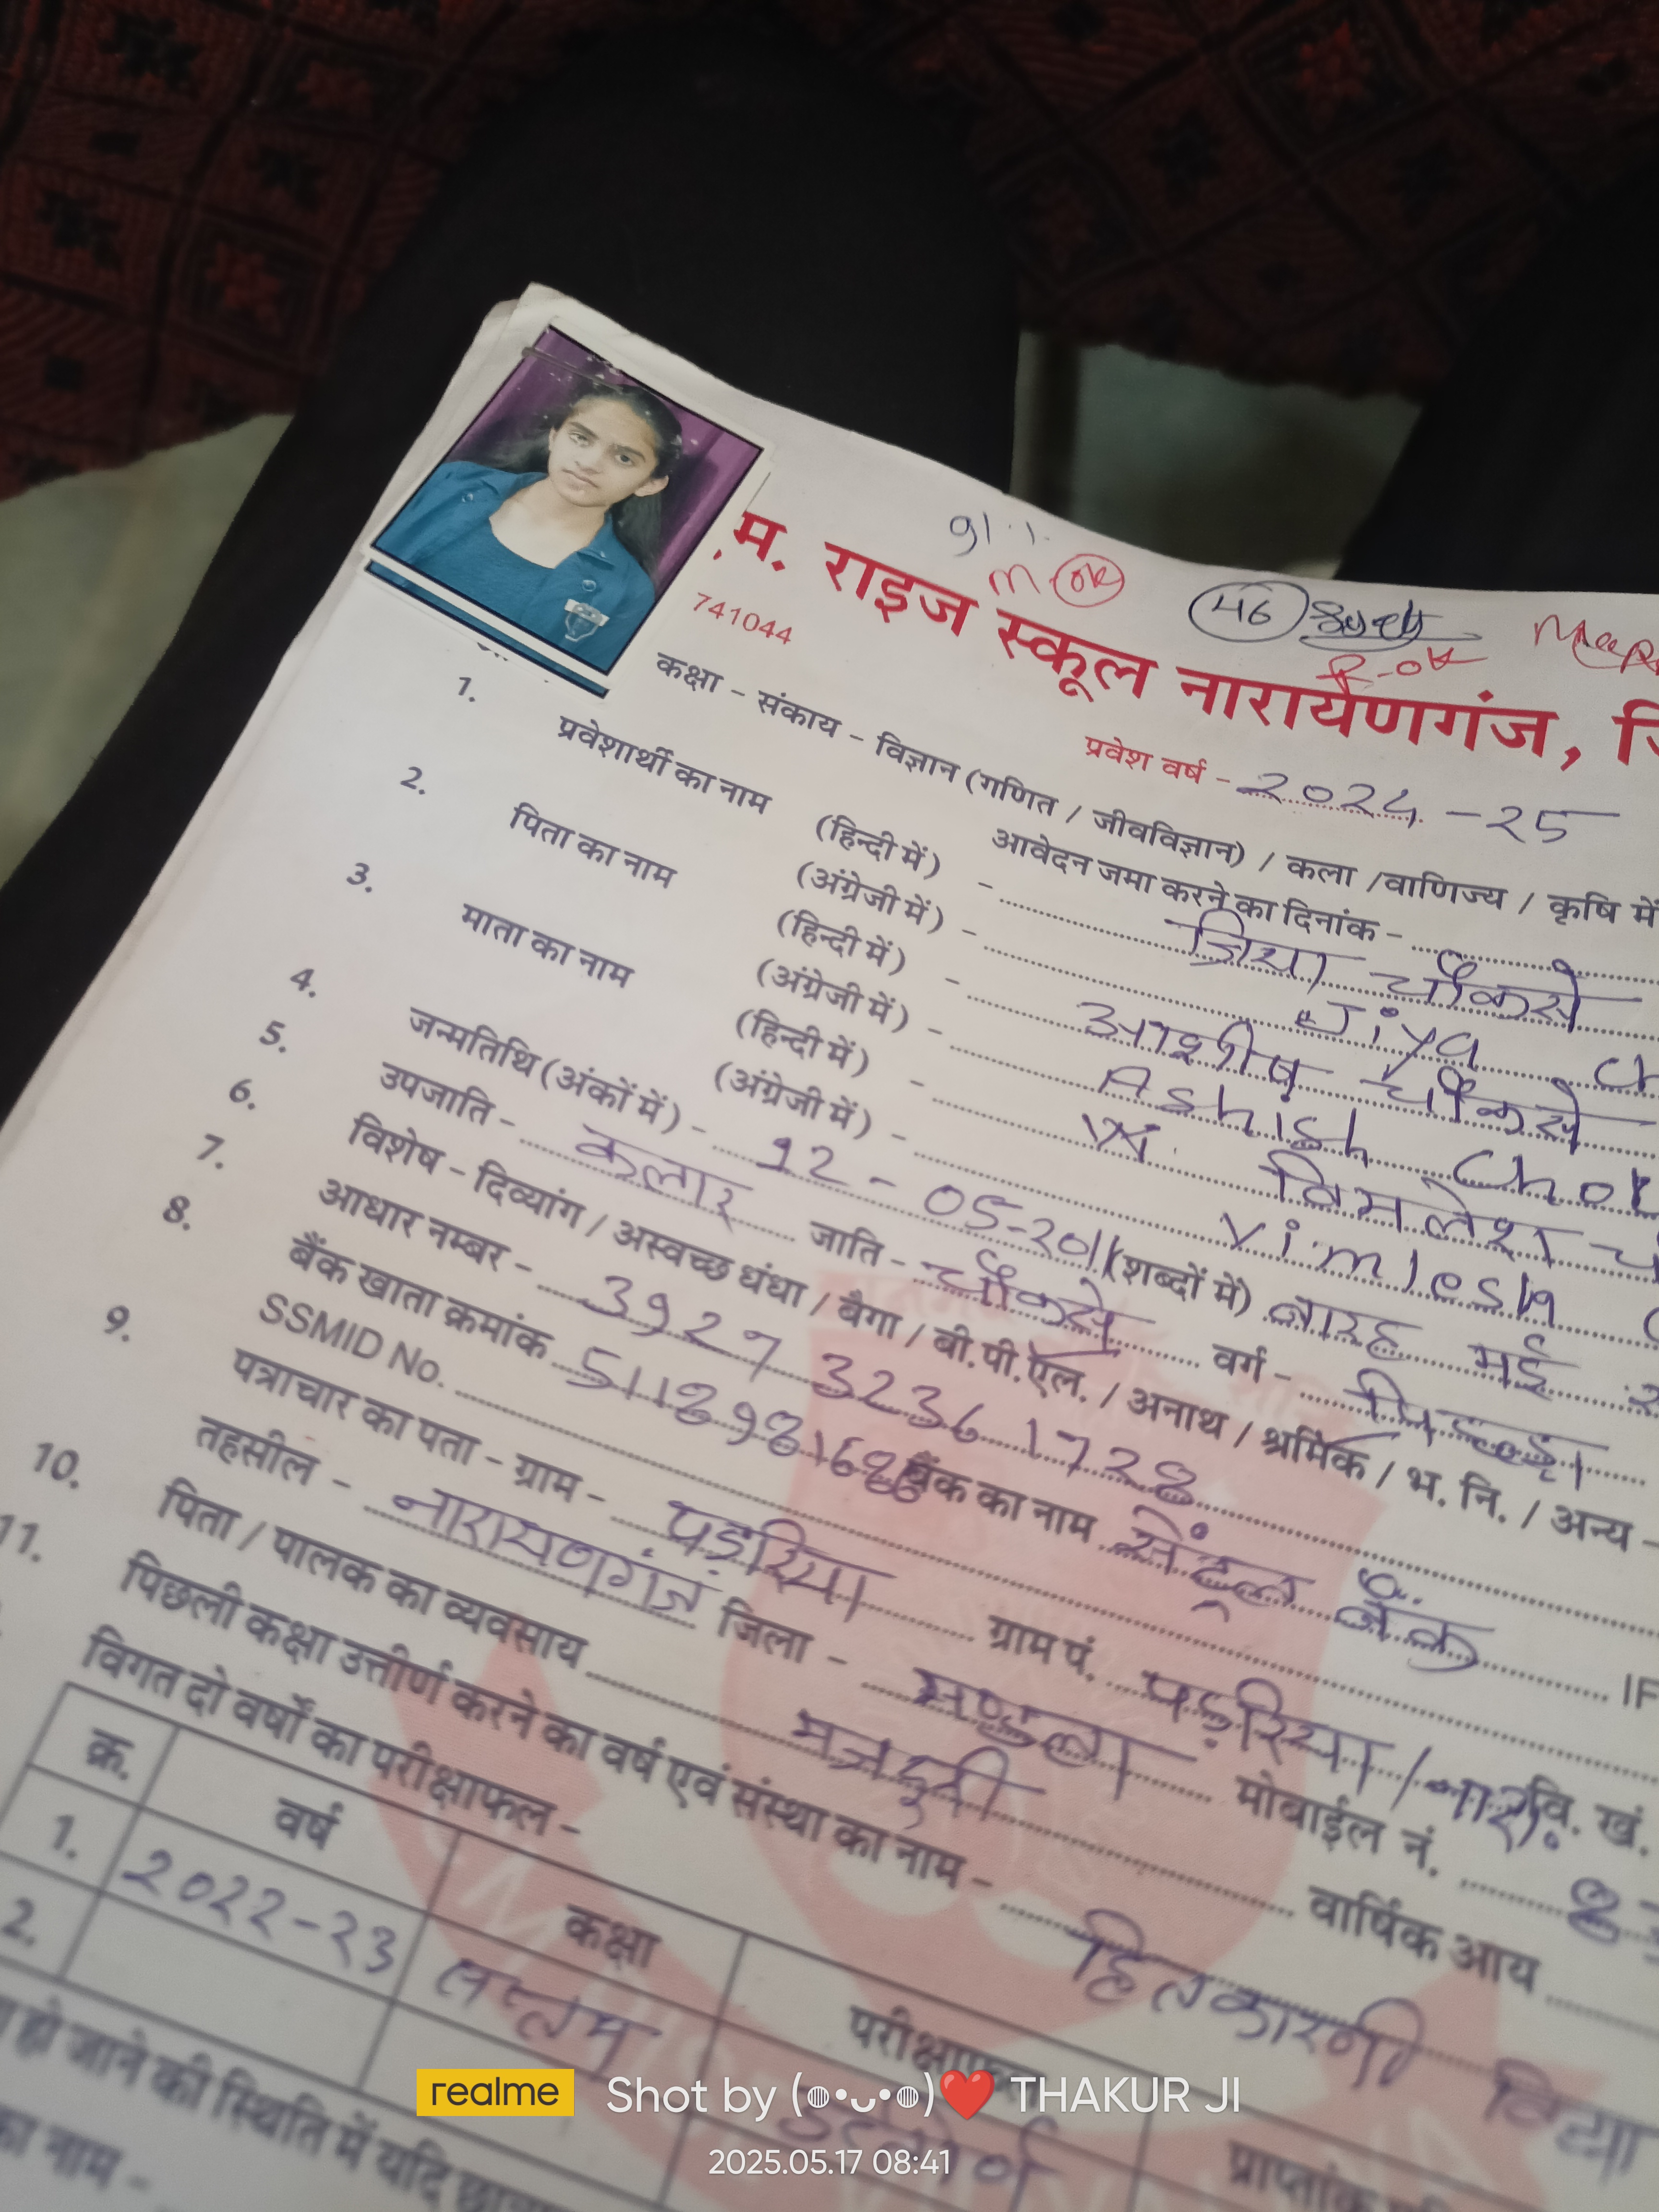 91%
M OK
46
R-OK
.म. राइज स्कूल नारायणगंज,
741044
प्रवेश वर्ष - 2024-25
कक्षा - संकाय - विज्ञान (गणित / जीवविज्ञान) / कला /वाणिज्य / कृषि में
आवेदन जमा करने का दिनांक -
1. प्रवेशार्थी का नाम (हिन्दी में) - जिया चौकसे
(अंग्रेजी में) - Jiya
2. पिता का नाम (हिन्दी में) - आशीष चौकसे
(अंग्रेजी में) - Ashish
3. माता का नाम (हिन्दी में) - विमलेश
(अंग्रेजी में) - Vimlesh
4. जन्मतिथि (अंकों में) - 12-05-2011 (शब्दों में) बारह मई
5. उपजाति - कलार जाति - चौकसे वर्ग - पिछड़ा
6. विशेष - दिव्यांग / अस्वच्छ धंधा / बैगा / बी.पी.ऐल. / अनाथ / श्रमिक / भ. नि. / अन्य -
7. आधार नम्बर - 3927 3236 1728
8. बैंक खाता क्रमांक 5118981686 बैंक का नाम सेंट्रल बैंक IF
SSMID No.
9. पत्राचार का पता - ग्राम - पड़रिया ग्राम पं. पड़रिया / नारा. वि. खं.
तहसील - नारायणगंज जिला - मण्डला मोबाईल नं.
10. पिता / पालक का व्यवसाय मजदूरी वार्षिक आय
11. पिछली कक्षा उत्तीर्ण करने का वर्ष एवं संस्था का नाम - हितकारणी विद्या
विगत दो वर्षों का परीक्षाफल -
क्र. वर्ष कक्षा परीक्षाफल प्राप्तांक
1. 2022-23 सप्तम उत्तीर्ण
2.
हो जाने की स्थिति में यदि
का नाम -
realme Shot by (◍•ᴗ•◍)❤️ THAKUR JI
2025.05.17 08:41